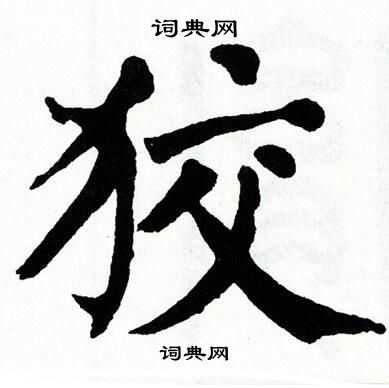 词典网
狡
词典网